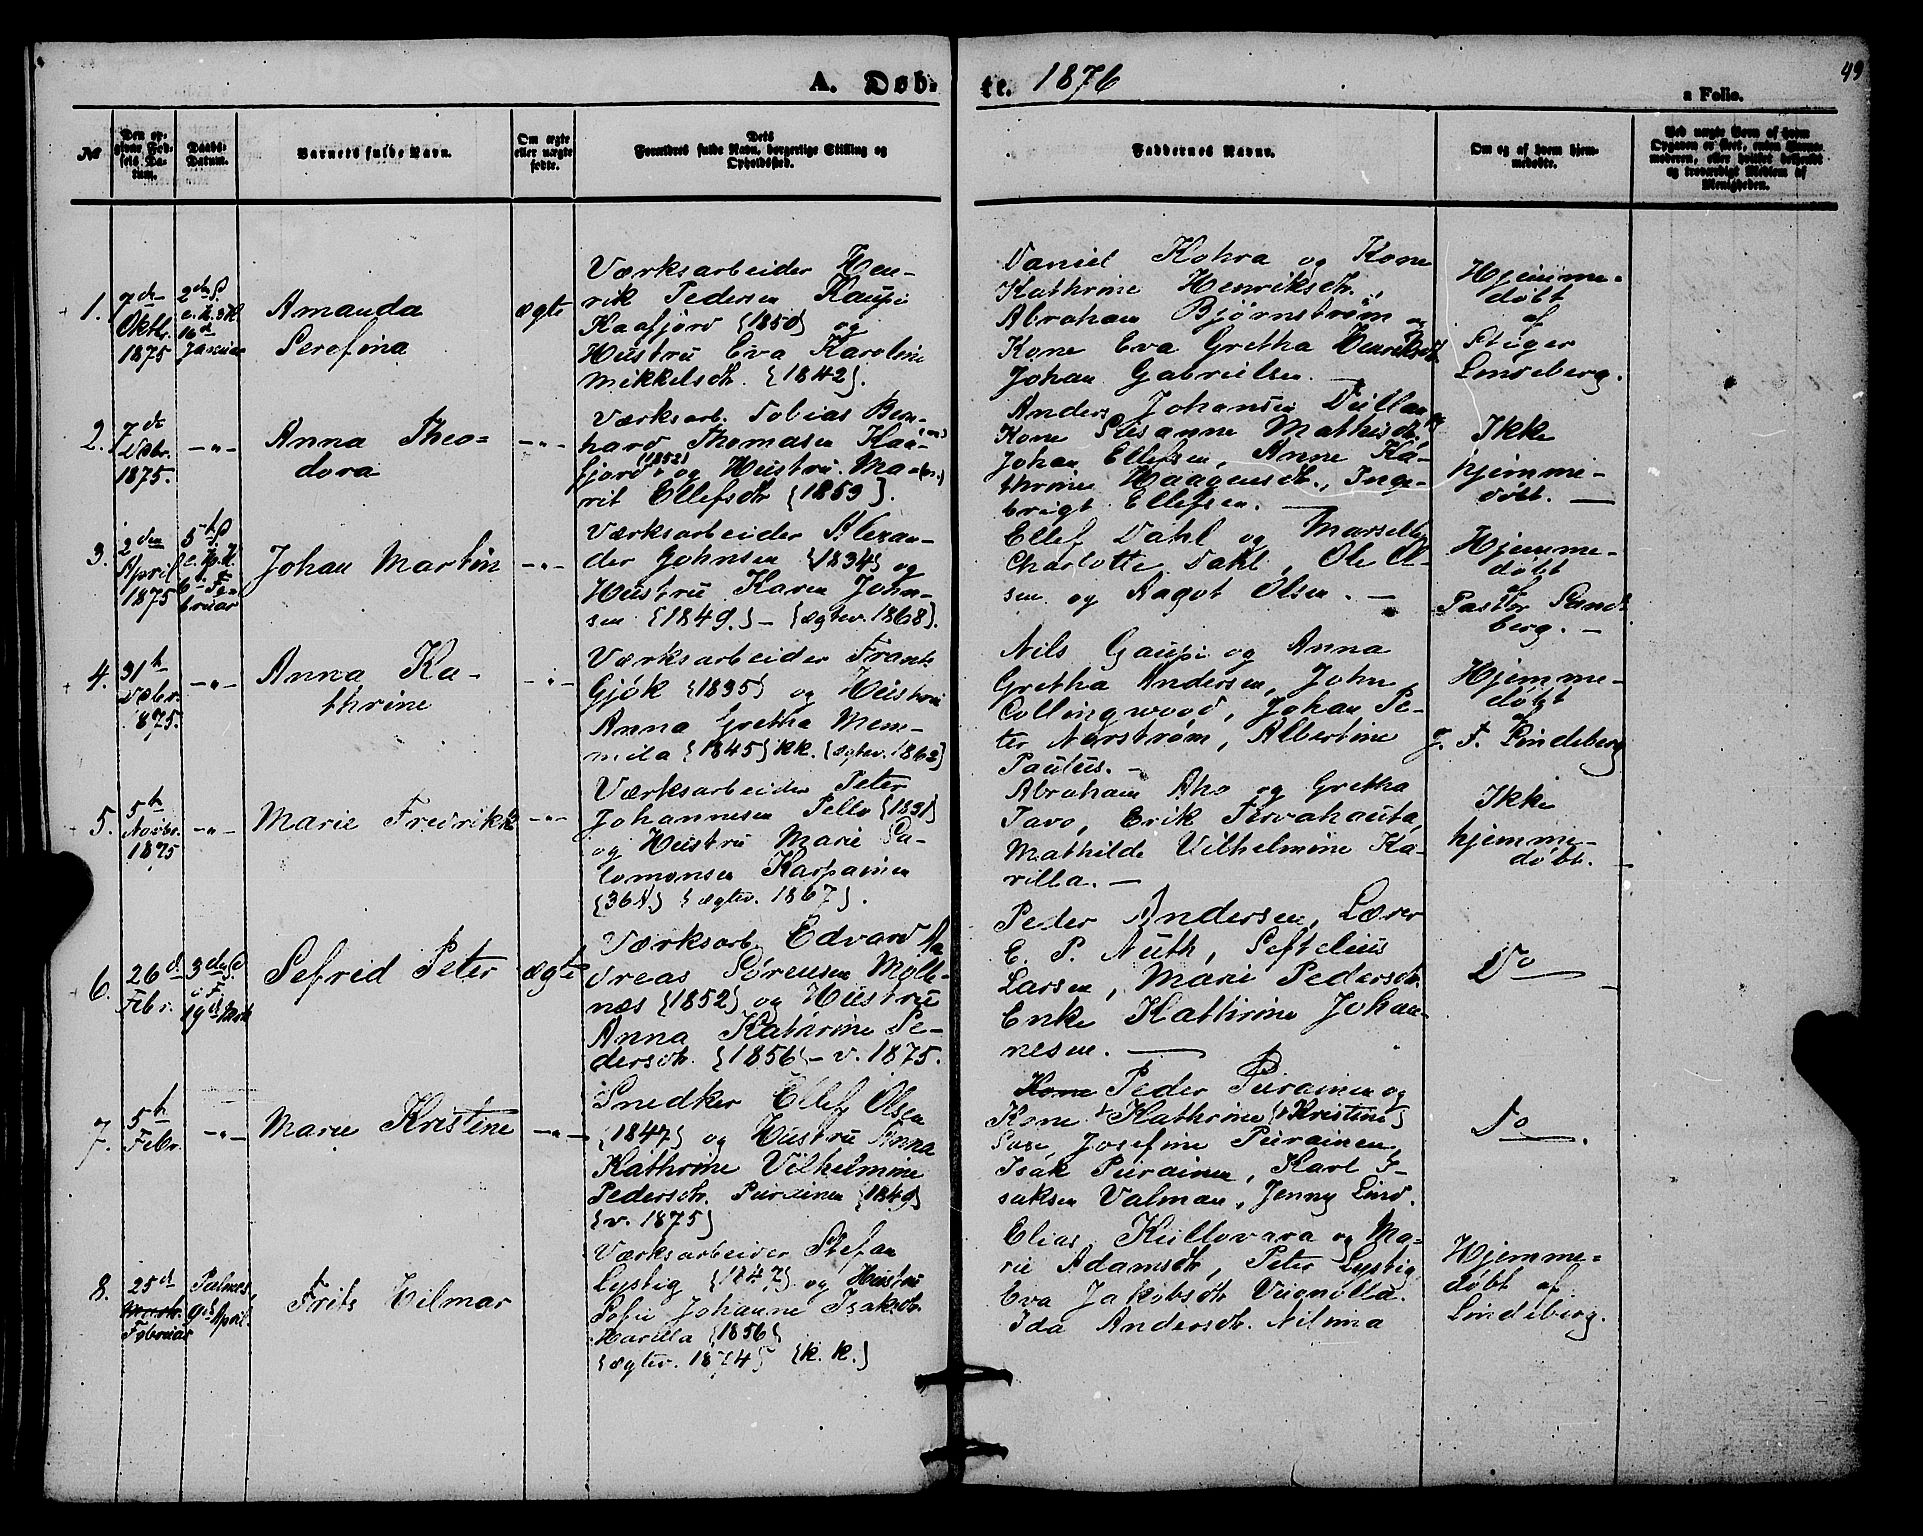 A. Døb-
te. 1876
49
a Folio.
№
Den op-
givne Fød-
sels Da-
tum.
Daabs-
Datum.
Barnets fulde Navn.
Om ægte
eller uægte
fødte.
Dets
Forældres fulde Navn, borgerlige Stilling og
Opholdssted.
Faddernes Navne.
Om og af hvem hjem-
medøbte.
1.
7de
Oktbr.
1875
2den S.
e. H. 3 K
16d
Januar
Amanda
Serefina
ægte
Værksarbeider Hen-
rik Pedersen Kaupi
Kaafjord {1850} og
Hustru Eva Karoline
Mikkelsdtr. {1842}.
Daniel Kohra og Kone
Kathrine Henriksdtr.,
Abraham Bjørnstrøm og
Kone Eva Gretha Henriksdtr
Johan Gabrielsen. —
Hjemme-
døbt
af
Stiger
Lindeberg.
2.
7de
Dcbr.
1875.
—„—
Anna Theo-
dora
—„—
Værksarb. Tobias Bern-
hard Thomasen Kaa-
fjord (1852) og Hustru Ma-
rit Ellefsdtr {1853}.
Anders Johansen
Kone Susanne Mathisdtr.
Johan Ellefsen, Anne Ka-
thrine Haagensdtr., Inge-
brigt Ellefsen. —
Ikke
hjemme-
døbt. —
3.
2den
April
1875
5th S.
e. H. 3 K.
6te Fe-
bruar
Johan Martin
—„—
Værksarbeider Alexan-
der Johnsen {1834} og
Hustru Karen John-
sen {1849.} — {ægtev. 1868}.
Ellef Dahl og Marselly
Charlotte Dahl, Ole Ol-
sen og Aagot Olsen. —
Hjemme-
døbt
af
Pastor Sand-
berg. —
4.
31th
Dcbr.
1875.
—„—
Anna Ka-
thrine
—„—
Værksarbeider Frants
Gjøk {1835} og Hustru
Anna Gretha Mem-
mila {1845} KK. {ægtev. 1862}
Nils Gaupi og Anna
Gretha Andersen, John
Collingwood, Johan Pe-
ter Narstrøm, Albertine
Paulus. —
Hjemme-
døbt
af
J. F. Lindeberg
5.
5th
Novbr.
1875
—„—
Marie Fredrikke
—„—
Værksarbeider Peter
Johannesen Pello {1831}
og Hustru Marie Sa-
lomonsen Karpainen
{36 A} {ægtev. 1867}.
Abraham Aho og Gretha
Tavo, Erik Tervahauta,
Mathilde Vilhelmine Ka-
villa. —
Ikke
hjemme-
døbt. —
6.
26d.
Febr.
3die S.
i F.
19de Mrts
Sefrid Peter
ægte
Værksarb. Edvard An-
dreas Sørensen Molt-
næs {1852} og Hustru
Anna Kathrine Pe-
dersdtr. {1856} — v. 1875.
Peder Andersen, Lærer
E. P. Nuth, Peftelius
Larsen, Marie Pedersdtr.
Enke Kathrine Johan-
nesen. —
Do
7.
5th
Febr.
—„—
Marie Kristine
—„—
Snedker Ellef Olsen
{1847} og Hustru Anna
Kathrine Vilhelmine
Pedersdtr. Puirainen {1849}
{v. 1875}
Kone Peder Puirainen og
Kone Kathrine {Kristine}
Josefine Puirainen,
Isak Puirainen, Karl I-
saksen Valman, Jenny Lind.
Do
8.
25d
Marts
Februar
Palmes.
9de April.
Frits Hilmar
Værksarbeider Stefan
Lystig {1847} og Hustru
Sofie Johanne Isaksdtr.
Harilla {1856}
{ægtev. 1874} {K. K.}
Elias Kullovara og Ma-
rie Adamsdtr, Peter Lystig
Eva Jakobsdtr
Ida Andersdtr. Nilima
Hjemme-
døbt af
Lindeberg.